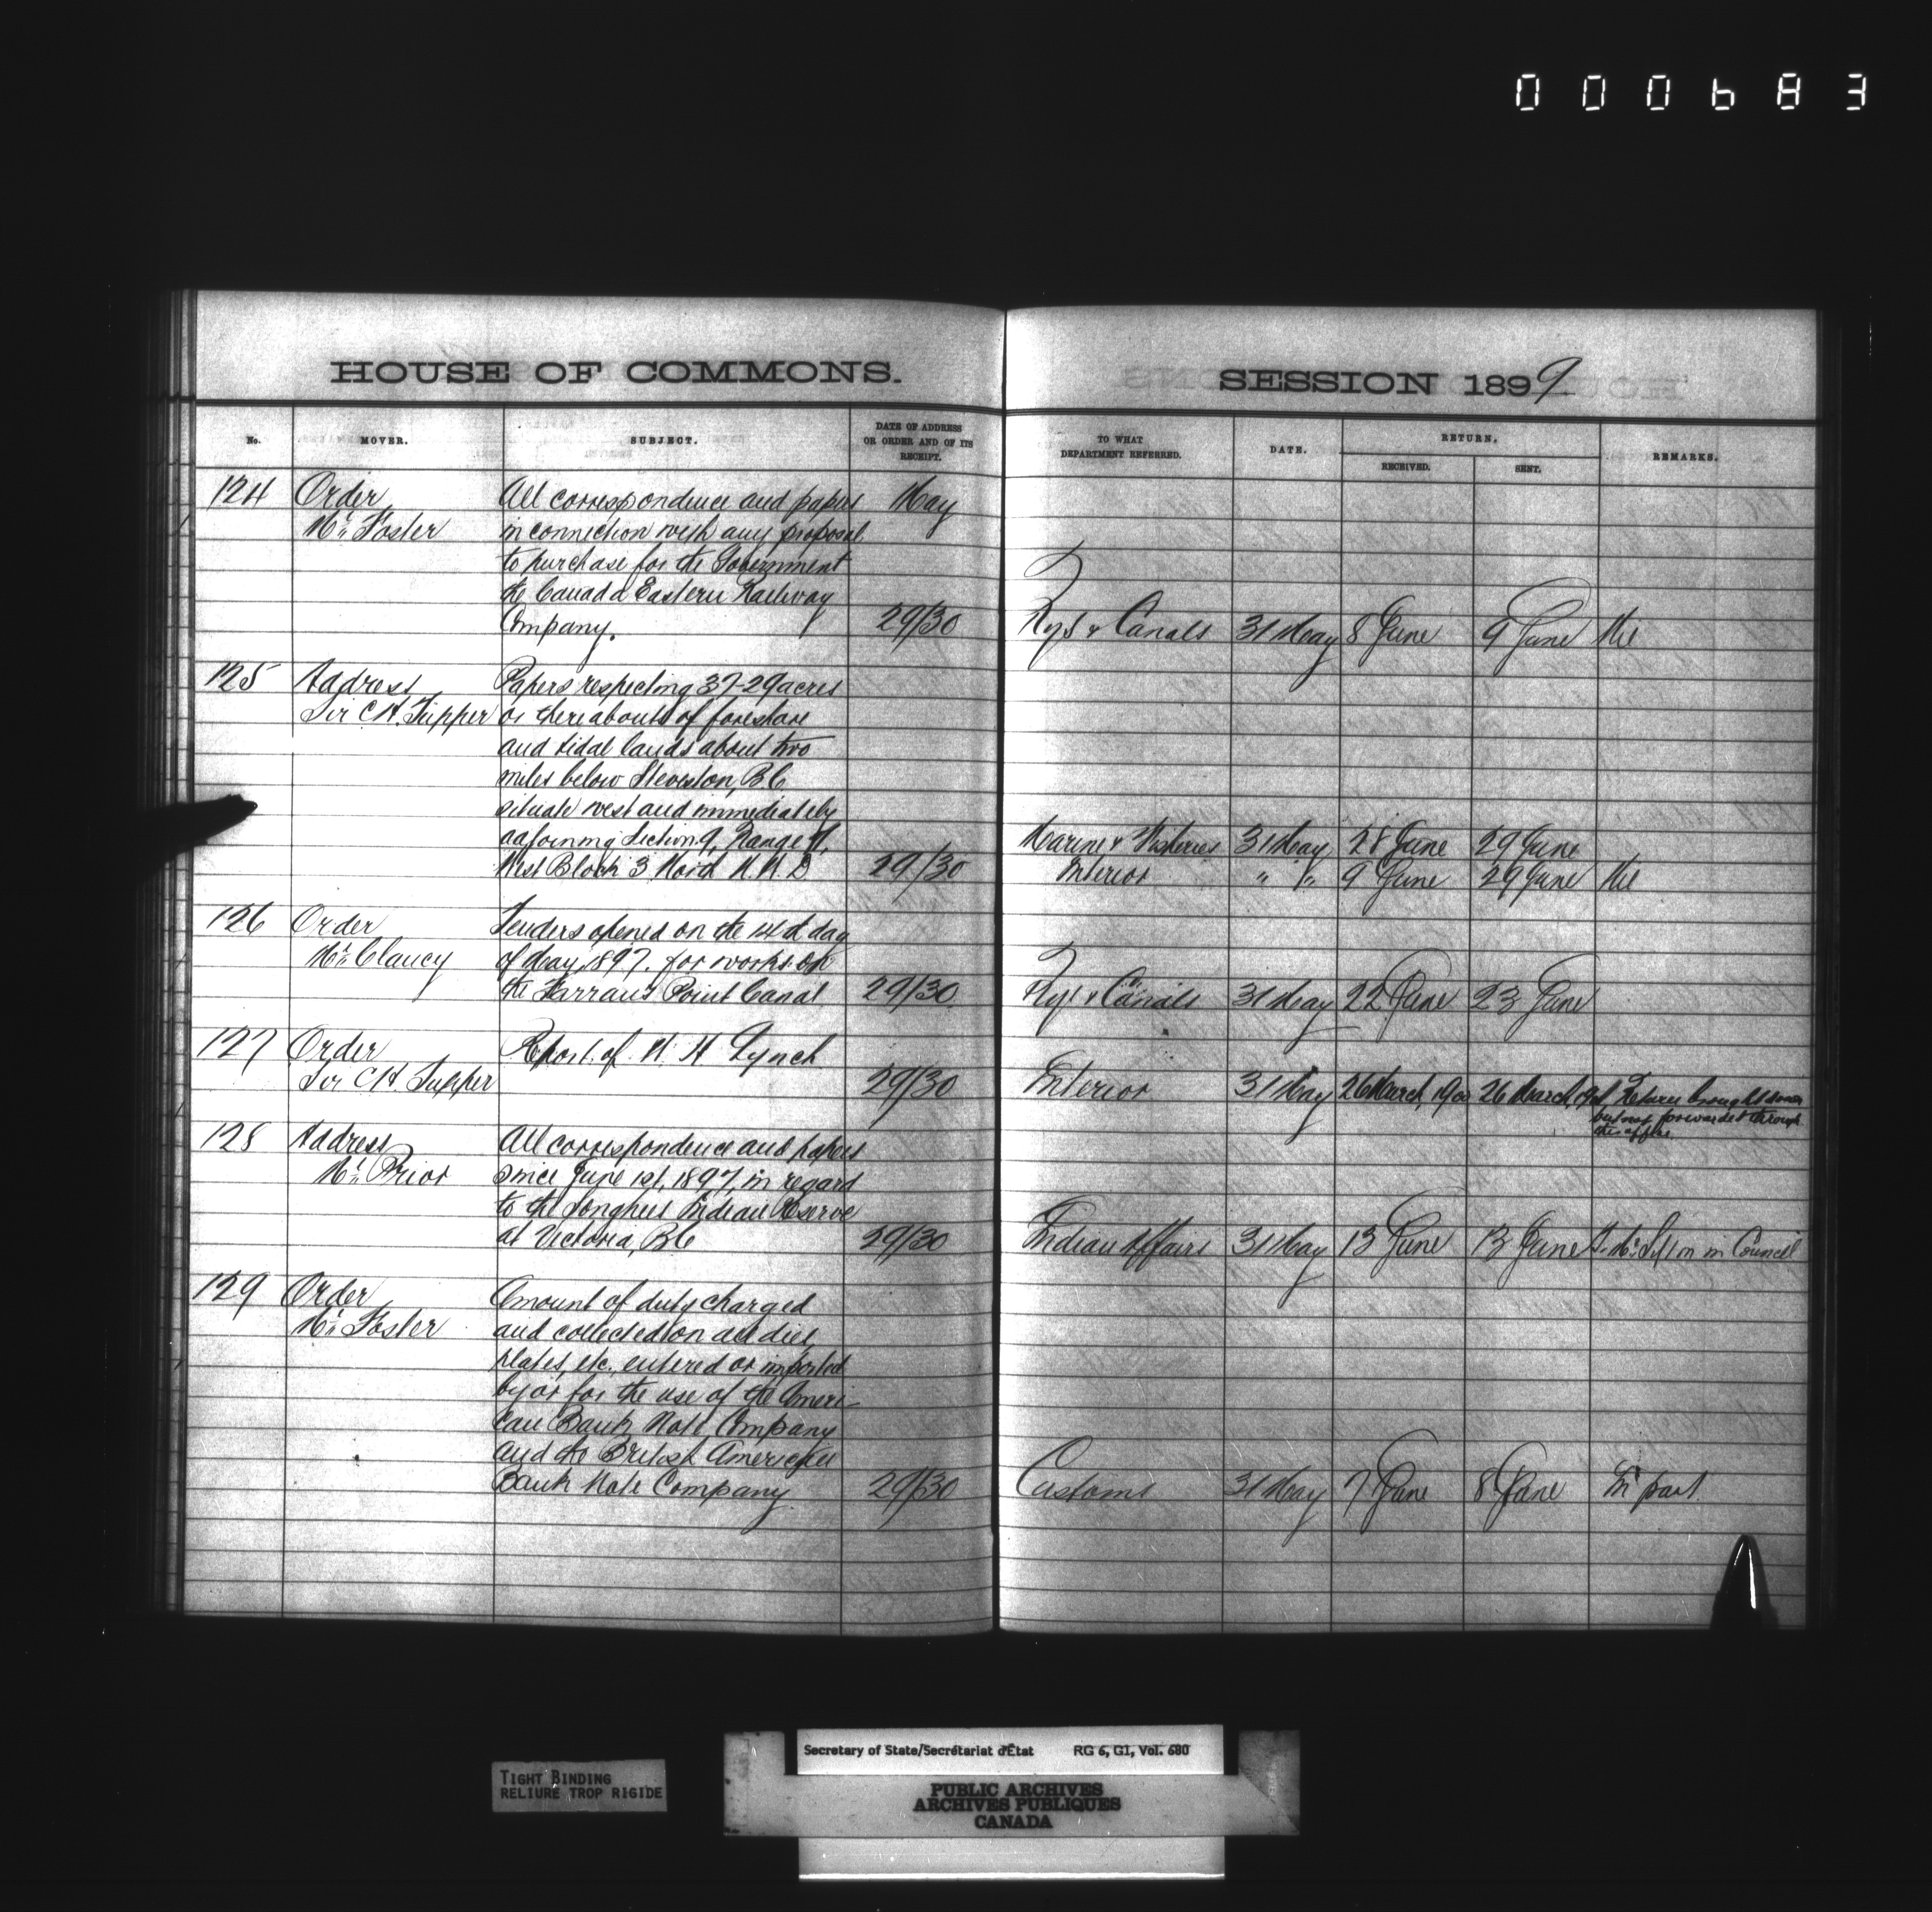 000683
HOUSE OF COMMONS.
No.
MOVER.
SUBJECT.
DATE OF ADDRESS
OR ORDER AND OF ITS
RECEIPT.
124 Order All correspondence and papers May
Mr. Foster in connection with any proposal
to purchase for the Government
the Canada Eastern Railway
Company. 29/30
125 Address Papers respecting 37-29 acres
Sir C H. Tupper or thereabouts of foreshore
and tidal lands about two
miles below Steveston, B C
situate west and immediately
adjoining Section 9, Range 7,
West Block 3 North N. W. D 29/30
126 Order Tenders opened on the 14th day
Mr. Clancy of May, 1897. for works on
the Farrans Point Canal 29/30
127 Order Report of W. H Lynch
Sir C H. Tupper 29/30
128 Address All correspondence and papers
Mr. Prior since June 1st, 1897, in regard
to the Songhees Indian Reserve
at Victoria, B C 29/30
129 Order Amount of duty charged
Mr. Foster and collected on all dies,
plates, etc. entered or imported
by or for the use of the Ameri-
can Bank Note Company
and the British American
Bank Note Company 29/30
SESSION 1899
TO WHAT
DEPARTMENT REFERRED.
DATE.
RETURN.
RECEIVED.
SENT.
REMARKS.
Rys & Canals 31 May 8 June 9 June Nil
Marine & Fisheries 31 May 28 June 29 June
Interior " " 9 June 29 June Nil
Rys & Canals 31 May 22 June 23 June
Interior 31 May 26 March, 1900 26 March, Return brought down
but not forwarded through
this office
Indian Affairs 31 May 13 June 13 June To Mr. Sifton in Council
Customs 31 May 7 June 8 June In part.
TIGHT BINDING
RELIURE TROP RIGIDE
Secretary of State/Secrétariat d'État RG 6, G1, Vol. 680
PUBLIC ARCHIVES
ARCHIVES PUBLIQUES
CANADA